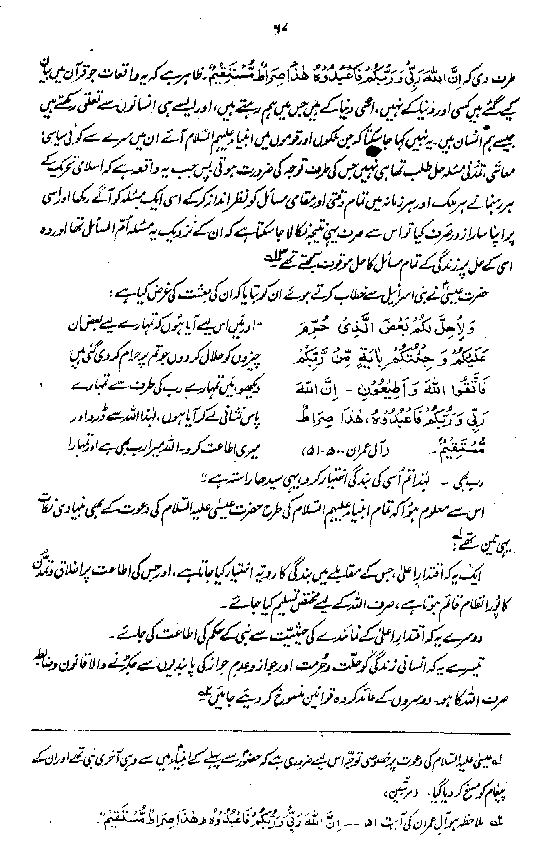 ۶۷
طرف دی کہ اِنَّ اللّٰهَ رَبِّيْ وَرَبُّكُمْ فَاعْبُدُوْهُ هٰذَا صِرَاطٌ مُّسْتَقِيْمٌ۔ ظاہر ہے کہ یہ واقعات جو قرآن میں بیان
کیے گئے ہیں کسی اور دنیا کے نہیں، اسی دنیا کے ہیں جس میں ہم رہتے ہیں، اور ایسے ہی انسانوں سے تعلق رکھتے ہیں
جیسے ہم انسان ہیں۔ یہ نہیں کہا جا سکتا کہ جن ملکوں اور قوموں میں انبیاء علیہم السلام آئے ان میں سرے سے کوئی سیاسی
معاشی، تمدنی مسئلہ حل طلب تھا ہی نہیں جس کی طرف توجہ کی ضرورت ہوتی پس جب یہ واقعہ ہے کہ اسلامی تحریک کے
ہر رہنما نے ہر ملک اور ہر زمانہ میں تمام وقتی اور مقامی مسائل کو نظر انداز کر کے اسی ایک مسئلہ کو آگے رکھا اور اسی
پر اپنا سارا زور صرف کیا تو اس سے صرف یہی نتیجہ نکالا جا سکتا ہے کہ ان کے نزدیک یہ مسئلہ اُمّ المسائل تھا اور وہ
اسی کے حل پر زندگی کے تمام مسائل کا حل موقوف سمجھتے تھے
حضرت عیسیٰؑ نے بنی اسرائیل سے خطاب کرتے ہوئے ان کو بتایا کہ ان کی بعثت کی غرض کیا ہے:
وَلِاُحِلَّ لَكُمْ بَعْضَ الَّذِيْ حُرِّمَ "اور میں اس لیے آیا ہوں کہ تمہارے لیے بعض ان
عَلَيْكُمْ وَجِئْتُكُمْ بِاٰيَةٍ مِّنْ رَّبِّكُمْ چیزوں کو حلال کر دوں جو تم پر حرام کر دی گئی ہیں
فَاتَّقُوا اللّٰهَ وَاَطِيْعُوْنِ - اِنَّ اللّٰهَ دیکھو، میں تمہارے رب کی طرف سے تمہارے
رَبِّيْ وَرَبُّكُمْ فَاعْبُدُوْهُ، هٰذَا صِرَاطٌ پاس نشانی لے کر آیا ہوں، لہٰذا اللہ سے ڈرو اور
مُّسْتَقِيْمٌ۔ (آل عمران ۵۰۔۵۱) میری اطاعت کرو۔ اللہ میرا رب بھی ہے اور تمہارا
رب بھی۔ لہٰذا تم اُسی کی بندگی اختیار کرو، یہی سیدھا راستہ ہے"؛
اس سے معلوم ہوا کہ تمام انبیاء علیہم السلام کی طرح حضرت عیسیٰ علیہ السلام کی دعوت کے بھی بنیادی نکات
یہی تین تھے؛
ایک یہ کہ اقتدارِ اعلیٰ، جس کے مقابلے میں بندگی کا رویہ اختیار کیا جاتا ہے، اور جس کی اطاعت پر اخلاق و تمدن
کا پورا نظام قائم ہوتا ہے، صرف اللہ کے لیے مختص تسلیم کیا جائے۔
دوسرے یہ کہ اقتدارِ اعلیٰ کے نمائندے کی حیثیت سے نبی کے حکم کی اطاعت کی جائے۔
تیسرے یہ کہ انسانی زندگی کو حلّت و حُرمت اور جواز و عدم جواز کی پابندیوں سے جکڑنے والا قانون و ضابطہ
صرف اللہ کا ہو۔ دوسروں کے عائد کردہ قوانین منسوخ کر دیئے جائیں
لہ عیسیٰ علیہ السلام کی دعوت پر خصوصی توجہ اس لیے ضروری ہے کہ حضورؐ سے پہلے کے انبیاء میں سے وہی آخری نبی تھے اور ان کے
پیغام کو مسخ کر دیا گیا۔ (مرتبین)
ملاحظہ ہو آل عمران کی آیت ۵۱ — اِنَّ اللّٰهَ رَبِّيْ وَرَبُّكُمْ فَاعْبُدُوْهُ هٰذَا صِرَاطٌ مُّسْتَقِيْمٌ"۔